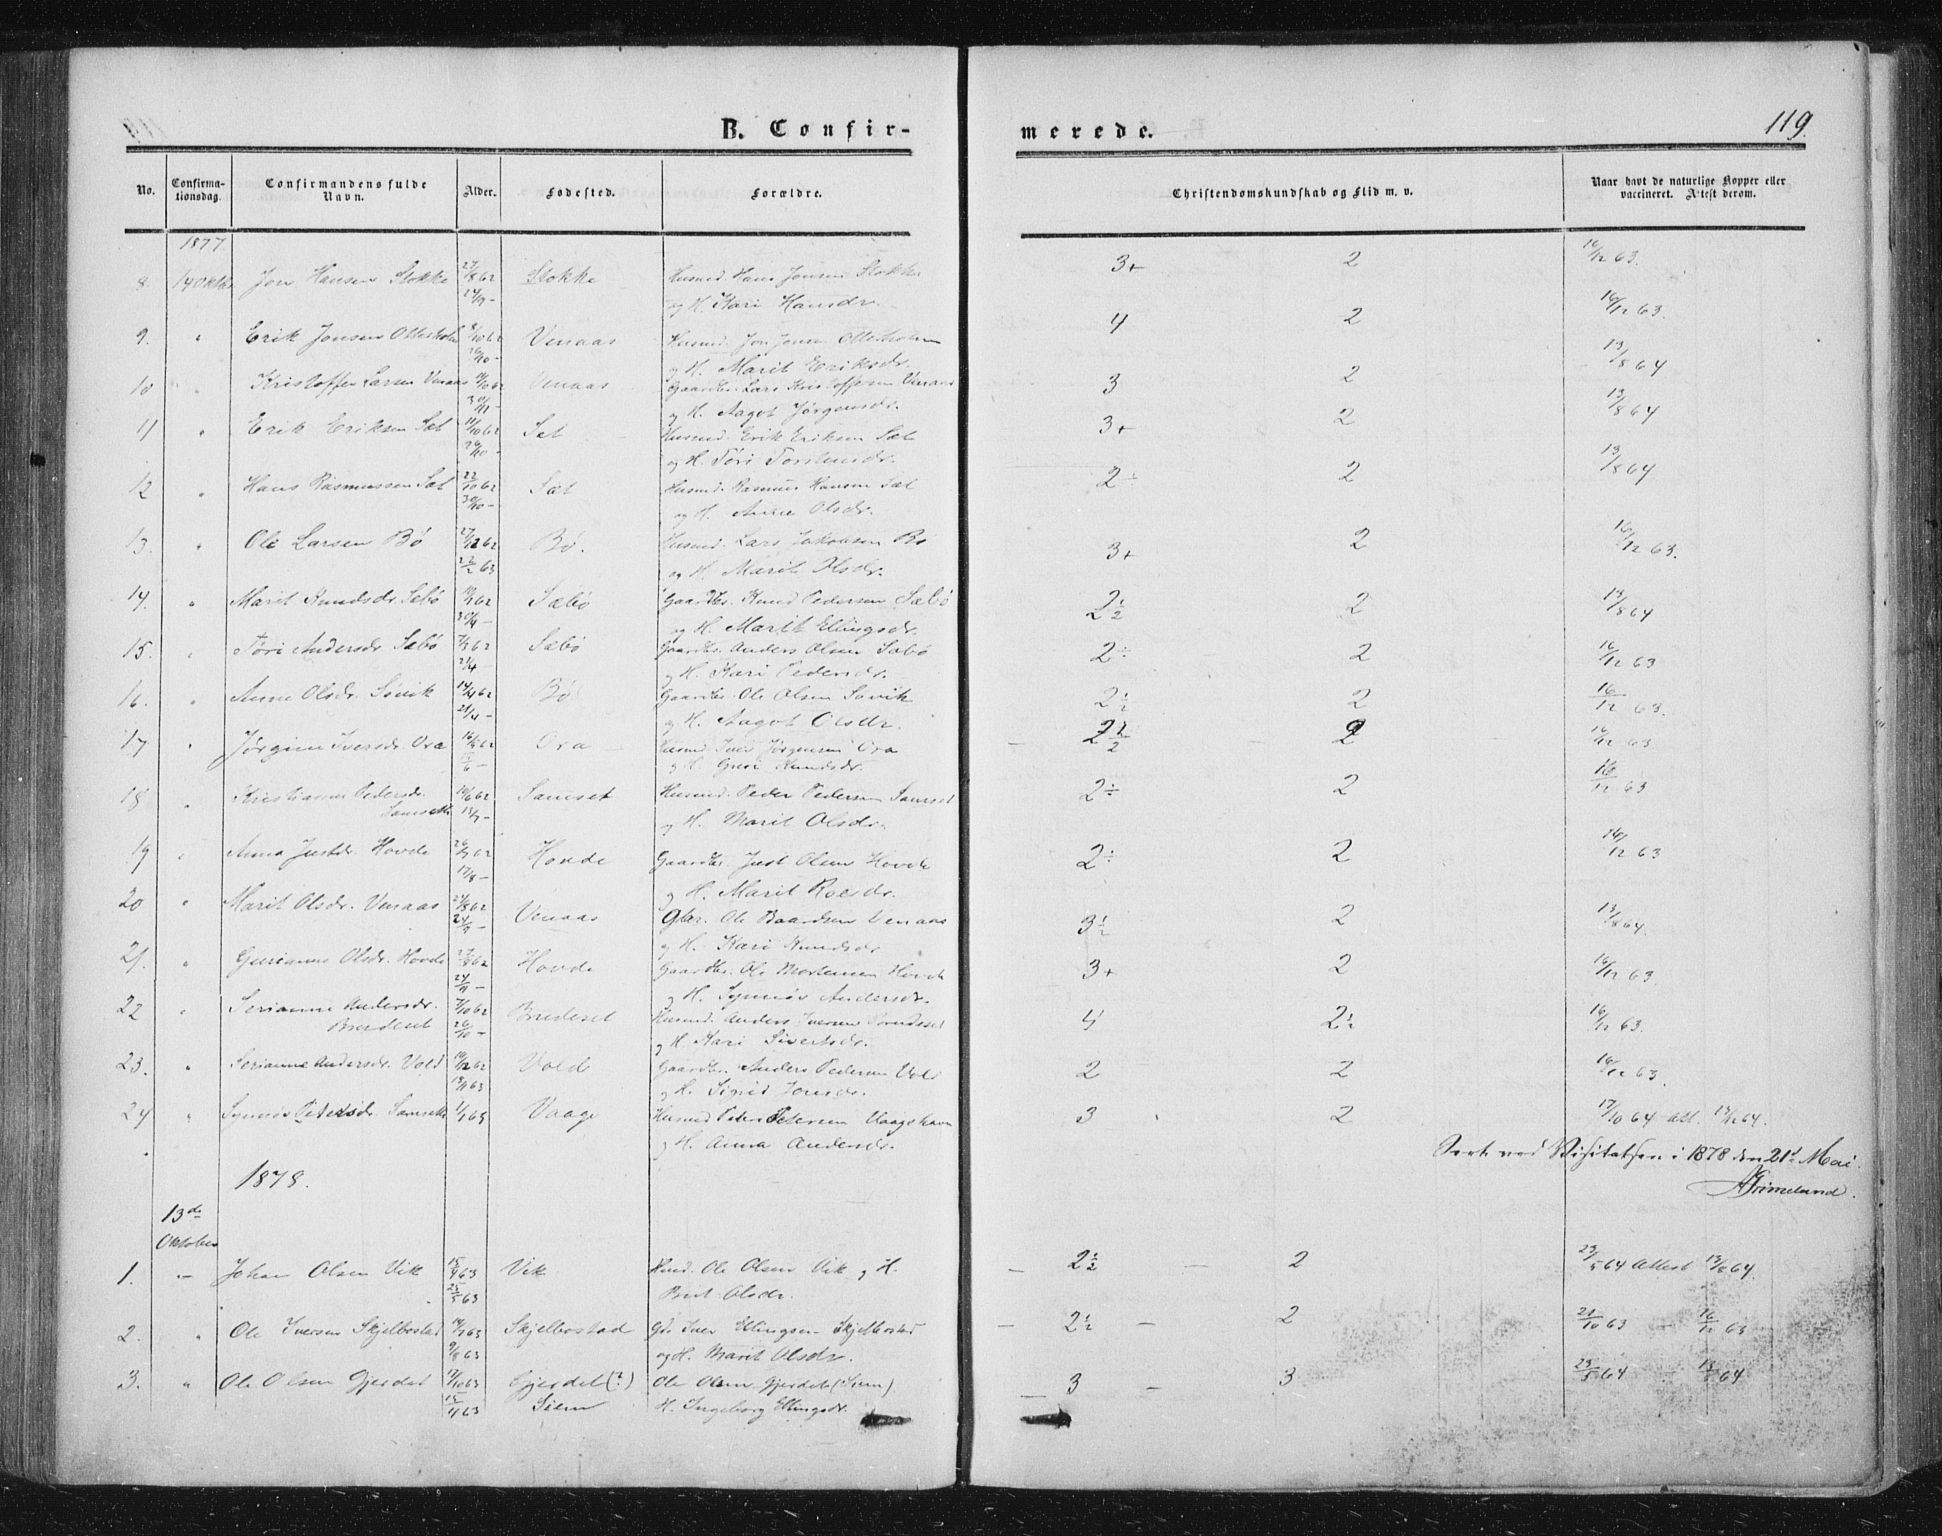 B. Confir-
merede.
119.
No.
Confirma-
tionsdag.
Confirmandens fulde
Navn.
Alder.
Fødested.
Forældre.
Christendomskundskab og Flid m. v.
Naar havt de naturlige Kopper eller
vaccineret. Attest derom.
1877.
8 14 Oktbr Jon Hansen Stokke 27/8 62 Stokke Husmd. Hans Jonsen Stokke 3+ 2 16/12 63.
24/9 - og H. Kari Hansdr.
9. " Erik Jonsen 8/10 62 Venaas Husmd. Jon Jonsen 4 2 16/12 63.
26/10 - og H. Marit Eriksdr.
10 " Kristoffer Larsen Venaas Venaas Gaardbr. Lars Kristoffersen Venaas 3 2 13/8 64
og H. Aagot Jørgensdr.
11 " Erik Eriksen Sæt 11/10 62 Sæt Husmd. Erik Eriksen Sæt 3+ 2 13/8 64
26/10 - og H. Töri Torstensdr.
12 " Hans Rasmussen Sæt 22/10 62 Sæt Husmd. Rasmus Hansen Sæt 2÷ 2 13/8 64
30/10 - og H. Anne Olsdr.
13. " Ole Larsen Bø 27/12 62 Bø. Husmd. Lars Jakobsen Bø 3+ 2 16/12 63.
22/2 63 og H. Marit Olsdr.
14. " Marit Knudsdr. Sæbø Sæbø Gaardbr. Knud Pedersen Sæbø 2½ 2 13/8 64
og H. Marit Ellingsdr.
15. " Töri Andersdr. Sæbø Sæbø Gaardbr. Anders Olsen Sæbø 2÷ 2 16/12 63
og H. Kari Pedersdr.
16. " Anne Olsdr. Søvik 14/4 62 Bø Gaardbr. Ole Olsen Søvik 2½ 2 16/12 63.
21/4 - og H. Aagot Olsdr.
17 " Jørgine Iversdr. Ora Ora Husmd. Iver Jørgensen Ora - 2½ - 2 16/12 63
og H. Guri Knudsdr.
18 " Kristianne Pedersdr. Samset Husmd. Peder Pedersen Samset 2÷ 2 16/12 63
og H. Marit Olsdr.
19 " Anna Justdr. Hovde Hovde Gaardbr. Just Olsen Hovde 2÷ 2 16/12 63
17/8 - og H. Marit Roesdr.
20 " Marit Olsdr. Venaas 24/8 62 Venaas Gbr. Ole Baardsen Venaas 3½ 2 13/8 64.
24/9 - og H. Kari Knudsdr.
21. " Gurianne Olsdr. Hovde 27/8 62 Hovde Gaardbr. Ole Mortensen Hovde 3+ 2 16/12 63
24/9 - og H. Synnöv Andersdr.
22 " Serianne Andersdr. 7/10 62 Bredeset Husmd. Anders Iversen 4 2½ 16/12 63.
Bredeset 26/10 - og H. Kari Sivertsdr.
23. " Serianne Andersdr. Vold Vold Gaardbr. Anders Pedersen Vold 2 2 16/12 63.
og H. Sigrid Jonsdr.
24 " Synnöv Petersdr. 1/1 63 Vaage Husmd Peter Petersen Vaagshavn 3 2 17/10 64 Att. 13/12 64.
og H. Anna Andersdr.
Seet ved Visitatsen i 1878 den 21de Mai.
AGrimelund.
1878.
13de
Oktober
1. - Johan Olsen Vik Vik Husmd. Ole Olsen Vik og H. - 2½ - 2 23/5 64 Attest
25/5 63 Brit Olsdr.
2. " Ole Iversen Skjelbostad Skjelbostad Gb. Iver Ellingsen Skjelbostad - 2½ - 2 21/10 63 - 16/12 63
9/8 63 og H. Marit Olsdr.
3. " Ole Olsen Gjerdet 17/10 63 Gjerdet (?) Ole Olsen Gjerdet (Siem) - 3 - 3 23/5 64
15/11 63 Siem H. Ingeborg Ellingsdr.